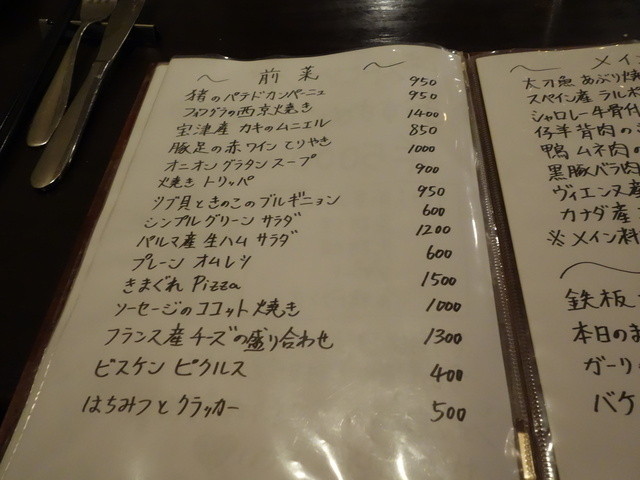 ～ 前菜 ～
猪のパテドカンパーニュ 950
フォワグラの西京焼き 950
宝津産 カキのムニエル 1400
豚足の赤ワイン てりやき 850
オニオン グラタン スープ 1000
焼き トリッパ 900
ツブ貝ときのこの ブルギニョン 950
シンプル グリーン サラダ 600
パルマ産 生ハム サラダ 1200
プレーン オムレツ 600
きまぐれ Pizza 1500
ソーセージのココット焼き 1000
フランス産 チーズの盛り合わせ 1300
ビスケン ピクルス 400
はちみつとクラッカー 500
～ メイン
太刀魚 あぶり焼
スペイン産 ラルポ
シャロレー牛骨付
仔羊背肉の
鴨 ムネ肉の
黒豚バラ肉
ヴィエンヌ産
カナダ産
※ メイン料
鉄板
本日の
ガーリ
バケ